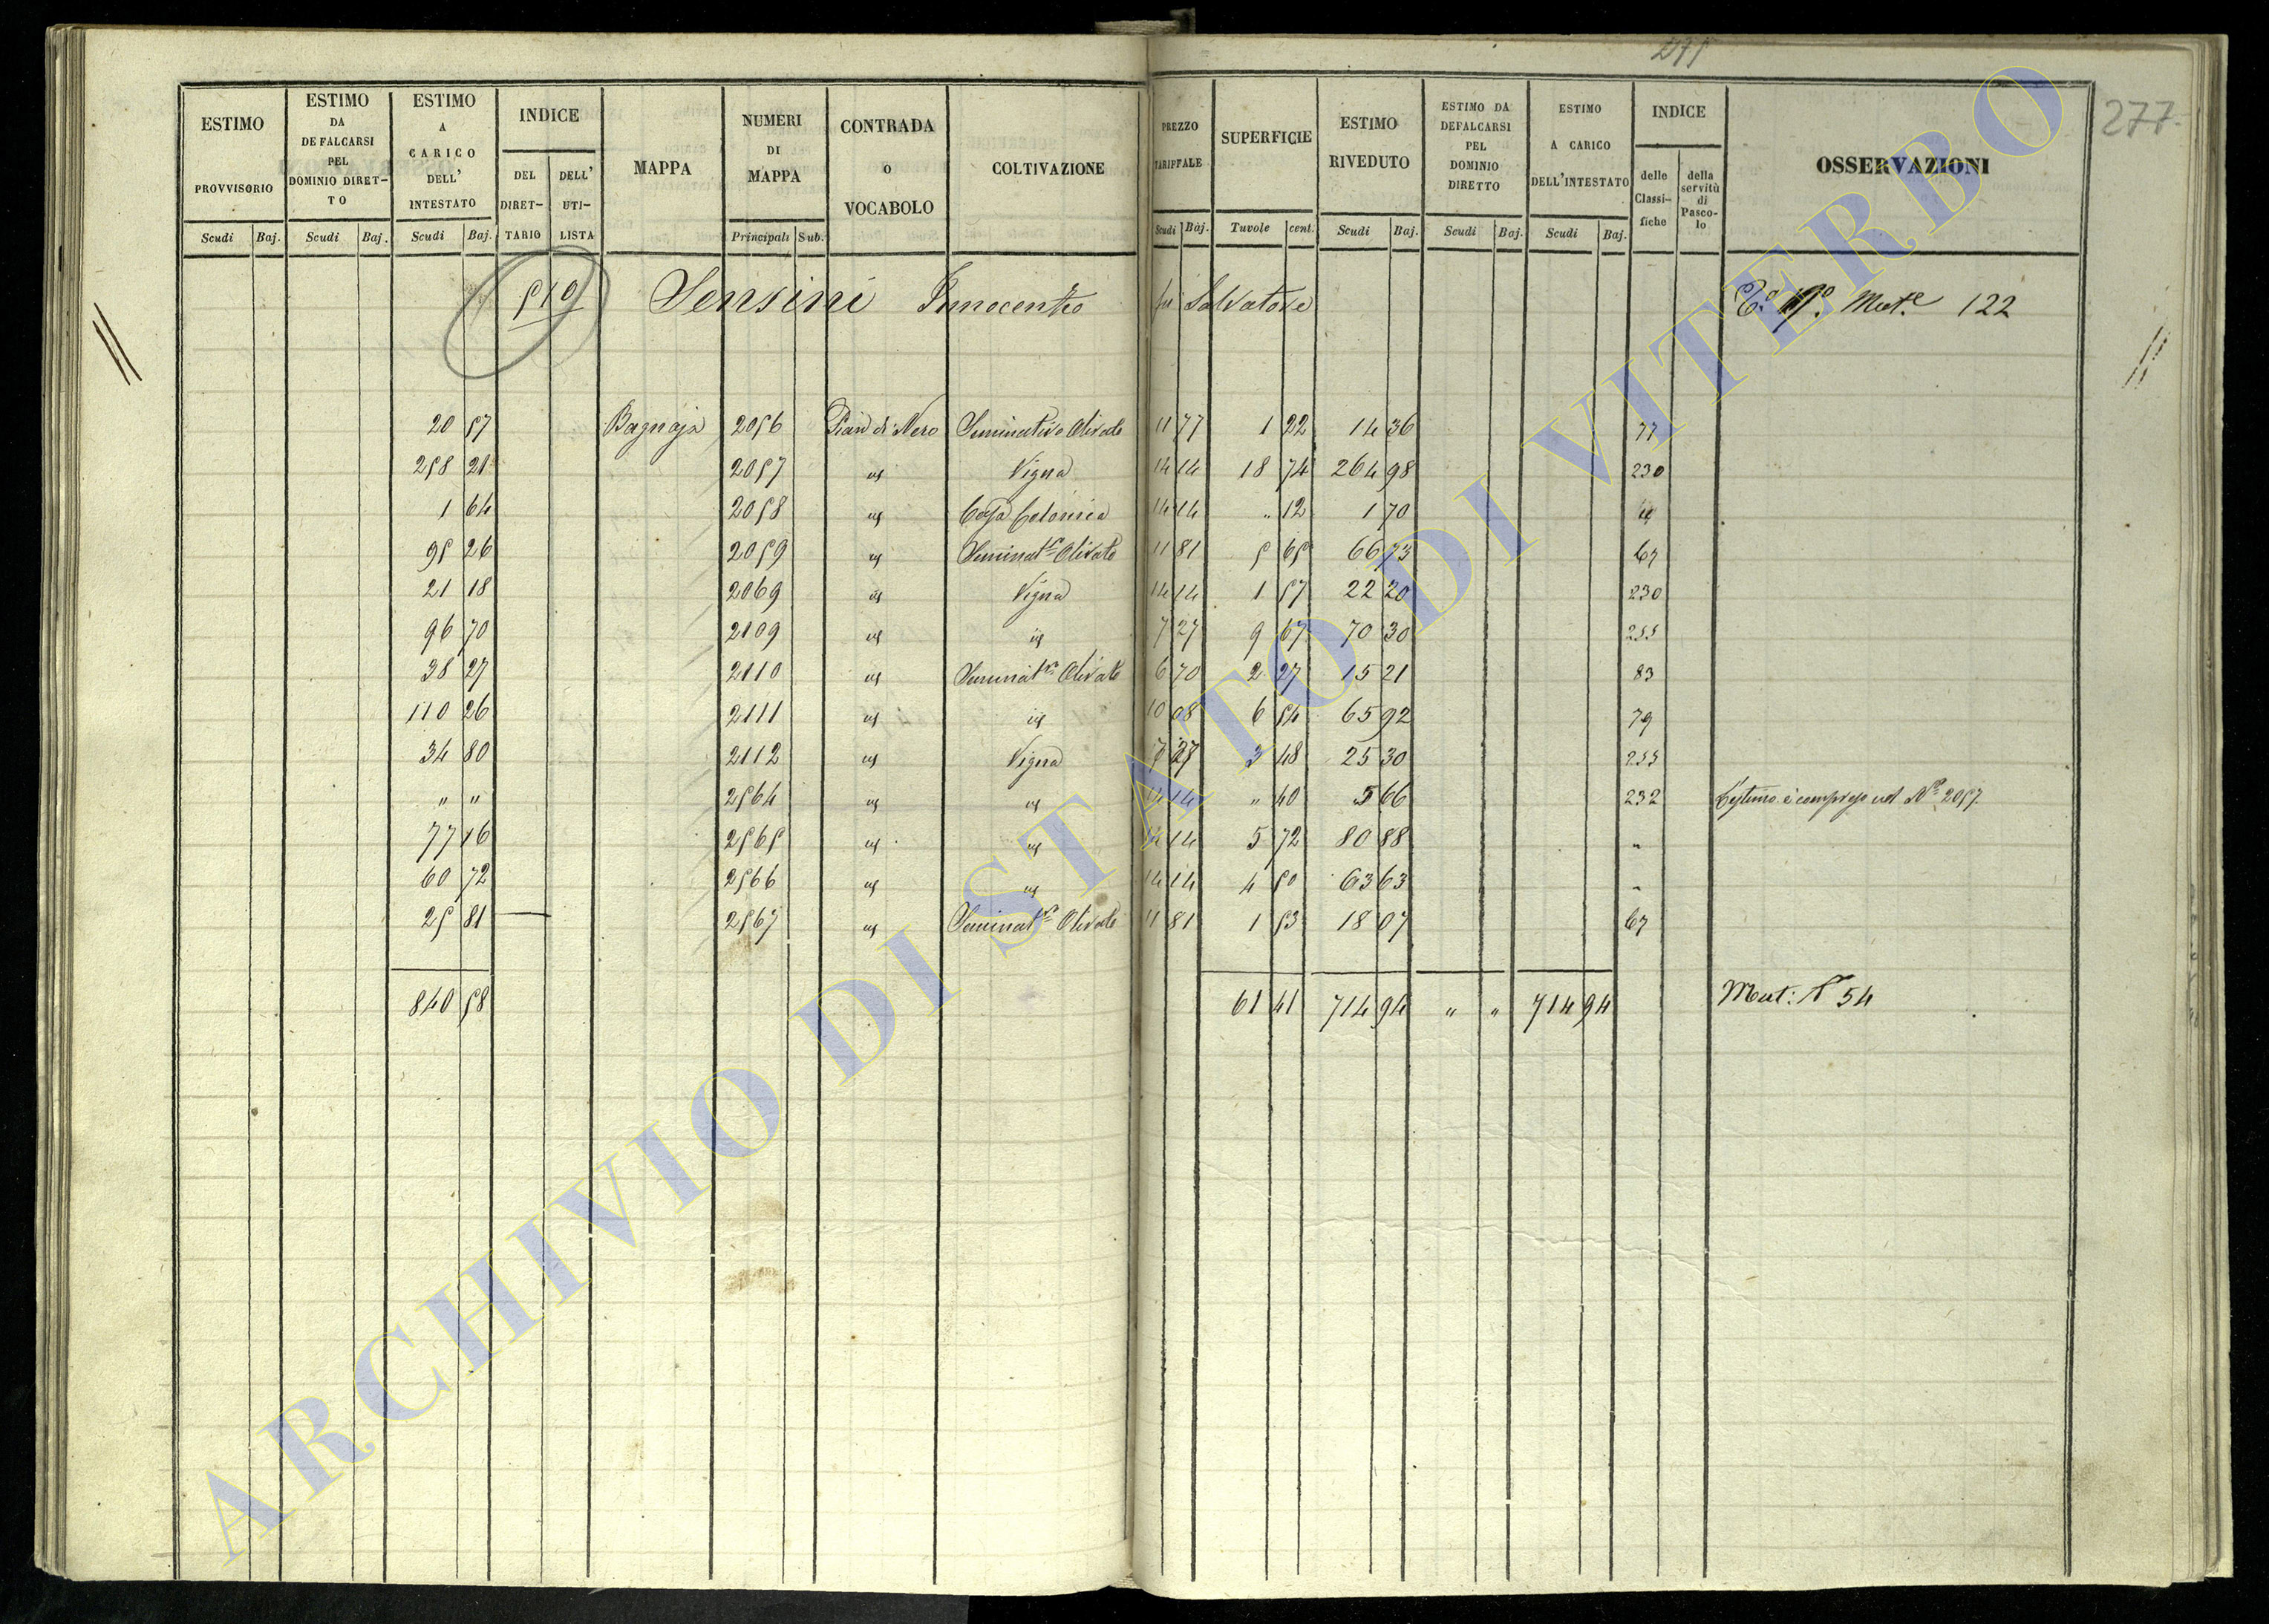 275
277
ESTIMO PROVVISORIO Scudi Baj.
ESTIMO DA DEFALCARSI PEL DOMINIO DIRET-TO Scudi Baj.
ESTIMO A CARICO DELL' INTESTATO Scudi Baj.
INDICE DEL DIRET-TARIO DELL' UTI-LISTA
MAPPA
NUMERI DI MAPPA Principali Sub.
CONTRADA o VOCABOLO
COLTIVAZIONE
PREZZO TARIFFALE Scudi Baj.
SUPERFICIE Tavole cent.
ESTIMO RIVEDUTO Scudi Baj.
ESTIMO DA DEFALCARSI PEL DOMINIO DIRETTO Scudi Baj.
ESTIMO A CARICO DELL'INTESTATO Scudi Baj.
INDICE delle Classi-fiche della servitù di Pasco-lo
OSSERVAZIONI
510 Sensini Innocenzo fu Salvatore Mut.e 122
20 57 Bagnaja 2056 Pian di Nero Seminativo Olivato 11 77 1 22 14 36 77
258 21 2057 us Vigna 14 14 18 74 264 98 230
1 64 2058 us Casa Colonica 14 14 " 12 1 70 us
95 26 2059 us Seminat.o Olivato 11 81 5 65 66 73 67
21 18 2069 us Vigna 14 14 1 57 22 20 230
96 70 2109 us us 7 27 9 67 70 30 255
38 27 2110 us Seminat.o Olivato 6 70 2 27 15 21 83
110 26 2111 us us 10 08 6 54 65 92 79
34 80 2112 us Vigna 7 27 3 48 25 30 255
" " 2564 us us 14 14 " 40 5 66 232 L'estimo è compreso nel N.o 2057
77 16 2565 us us 14 14 5 72 80 88 "
60 72 2566 us us 14 14 4 50 63 63 "
25 81 2567 us Seminat.o Olivato 11 81 1 53 18 07 67
840 58 61 41 714 94 " " 714 94 Mut: N 54
ARCHIVIO DI STATO DI VITERBO